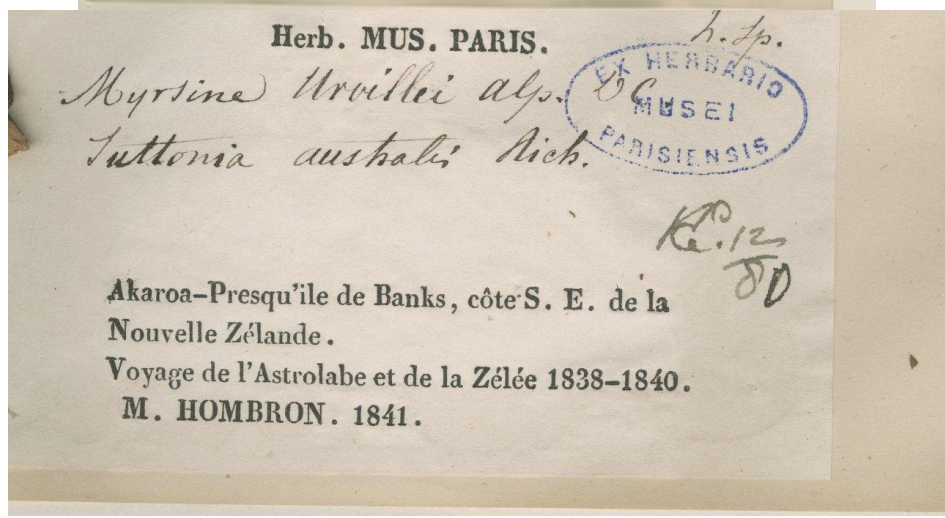 Herb. MUS. PARIS.
h. sp.
Myrsine Urvillei Alp. DC.
Suttonia australis Rich.
EX HERBARIO
MUSEI
PARISIENSIS
Rc. 12
80
Akaroa-Presqu'ile de Banks, côte S. E. de la
Nouvelle Zélande.
Voyage de l'Astrolabe et de la Zélée 1838-1840.
M. HOMBRON. 1841.